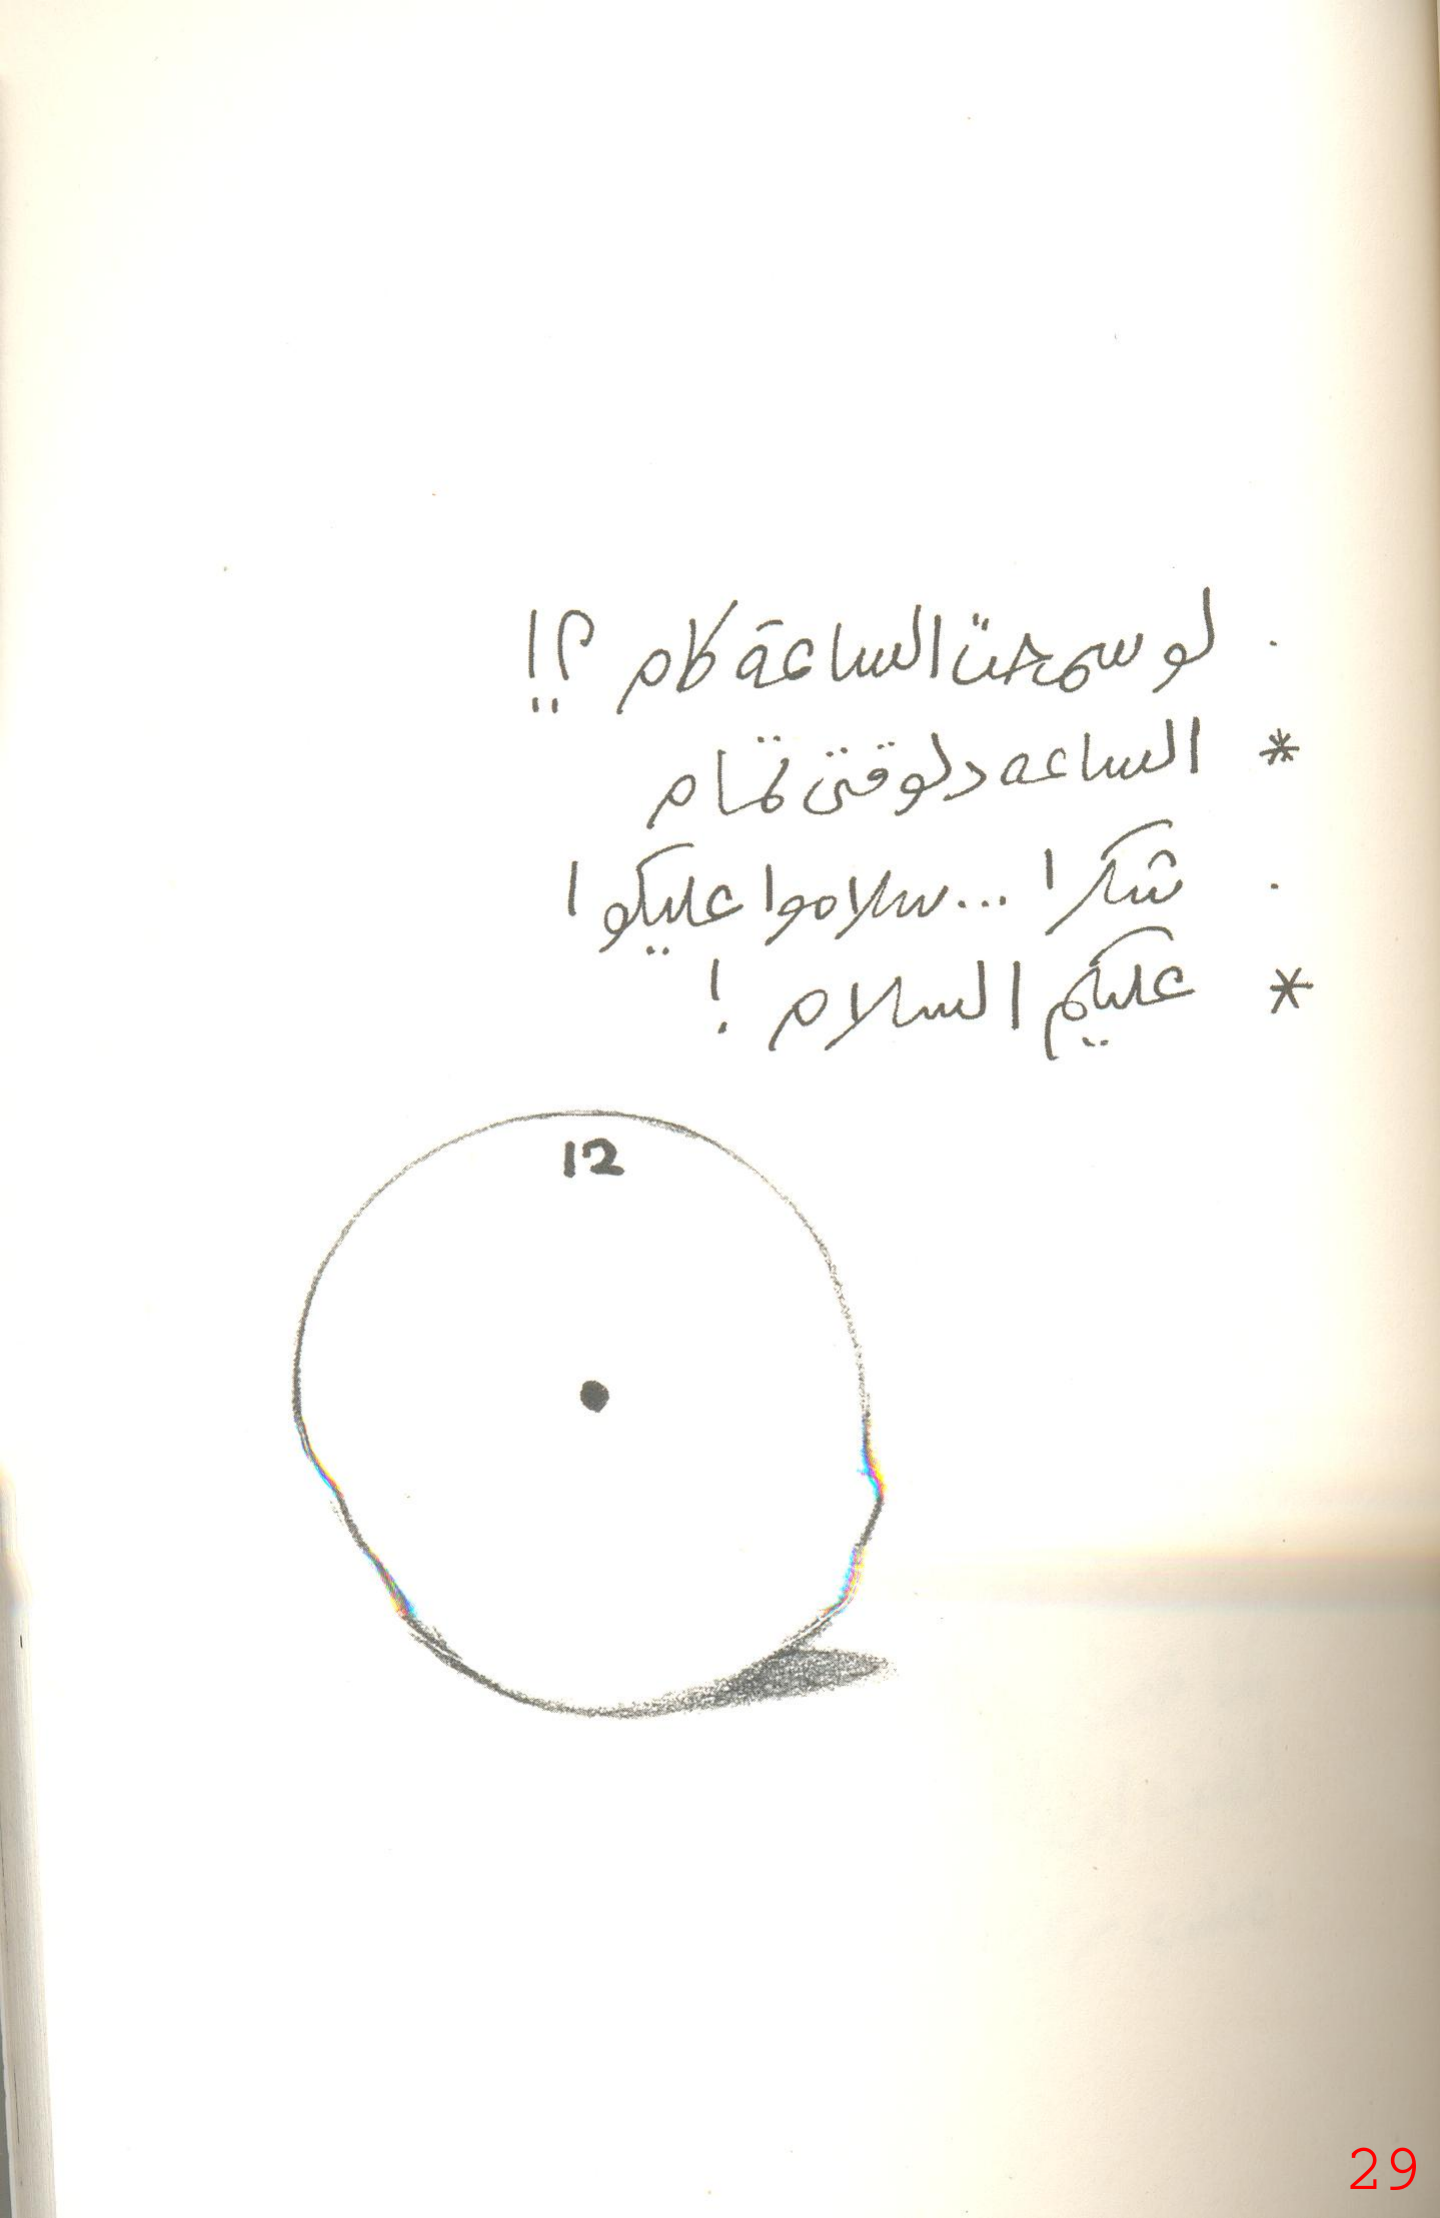 . لو سمحت الساعة كام ؟!
* الساعه دلوقتى تمام
. شكرا ... سلاموا عليكوا
* عليكم السلام !
12
29